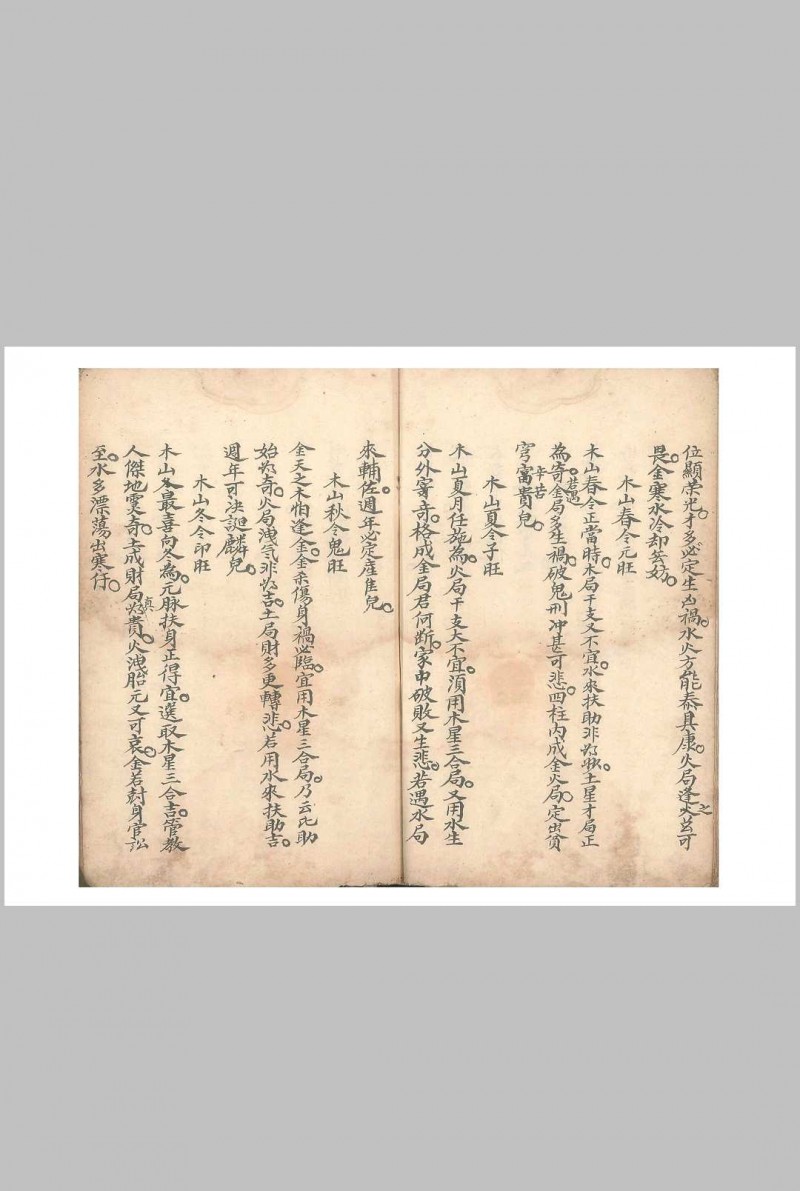 位顯荣光才多必定生凶禍水火方能泰具康火局逢之火豈可
畏金寒水冷却芸妨
木山春令元旺
木山春令正當時木局干支又不宜水來扶助非為土星才局正
為奇若遇金局多生禍破鬼刑冲甚可悲四柱内成金火局定出貧
穹辛苦富貴兒
木山夏令子旺
木山夏月任施為火局干支大不宜須用木星三合局又用水生
分外寄奇格成金局君何断家中破敗又生悲若遇水局
來輔佐週年必定產佳兒
木山秋令鬼旺
金天之木怕逢金金杀傷身禍必臨宜用木星三合局乃云比助
始為奇火局洩氣非為吉土局財多更轉悲若用水來扶助吉
週年可决誕麟兒
木山冬令印旺
木山冬最喜向冬為元脉扶身正得宜選取木星三合吉管教
人傑地灵奇土成財局為真貴火洩胎元又可哀金若尅身官訟
至水多漂蕩出寒仔